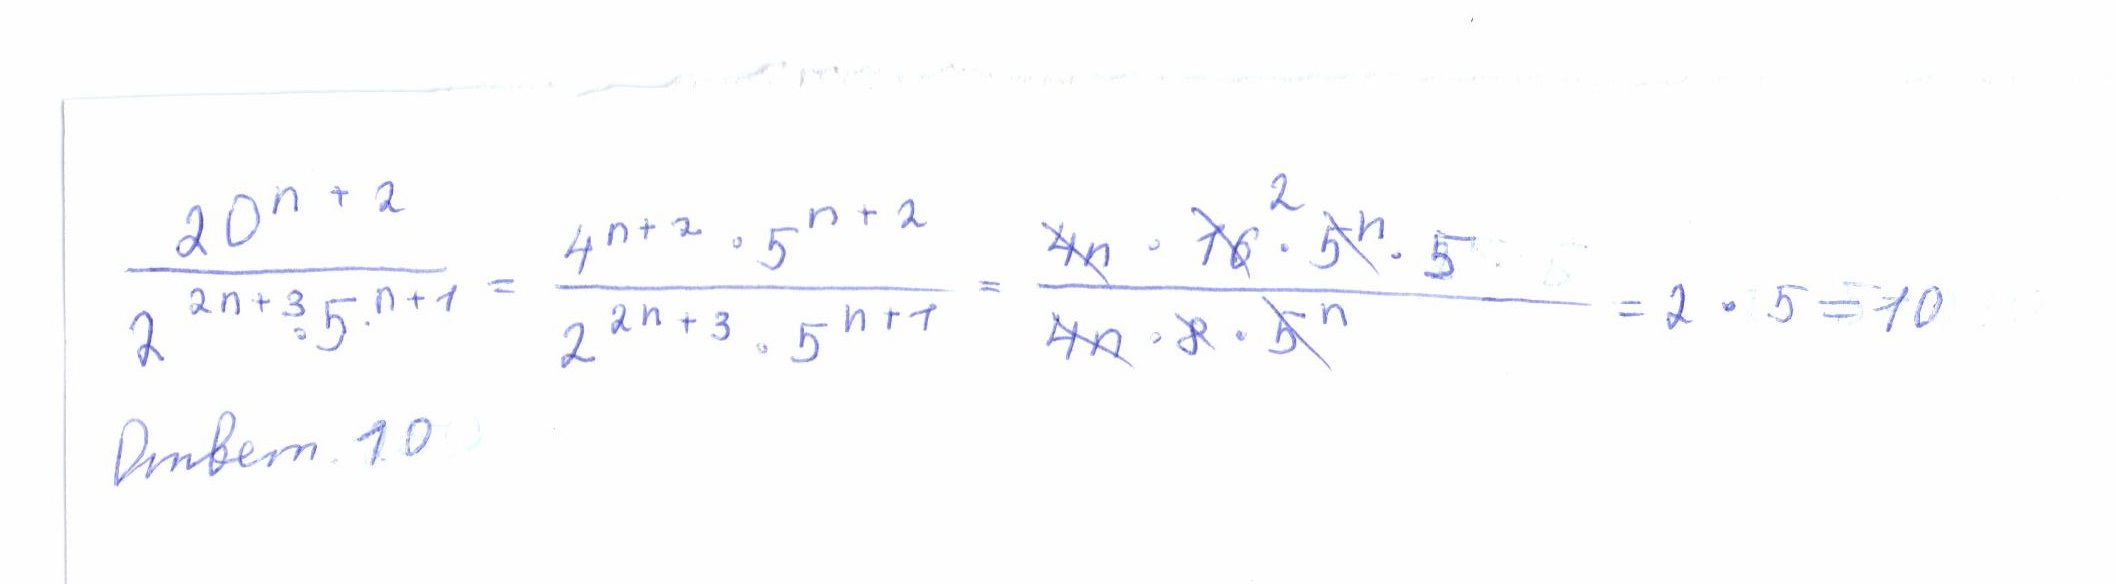 20^{n+2} / 2^{2n+3} · 5^{n+1} = 4^{n+2} · 5^{n+2} / 2^{2n+3} · 5^{n+1} = 4n · 16^2 · 5^n · 5 / 4n · 8 · 5^n = 2 · 5 = 10
Ответ. 10